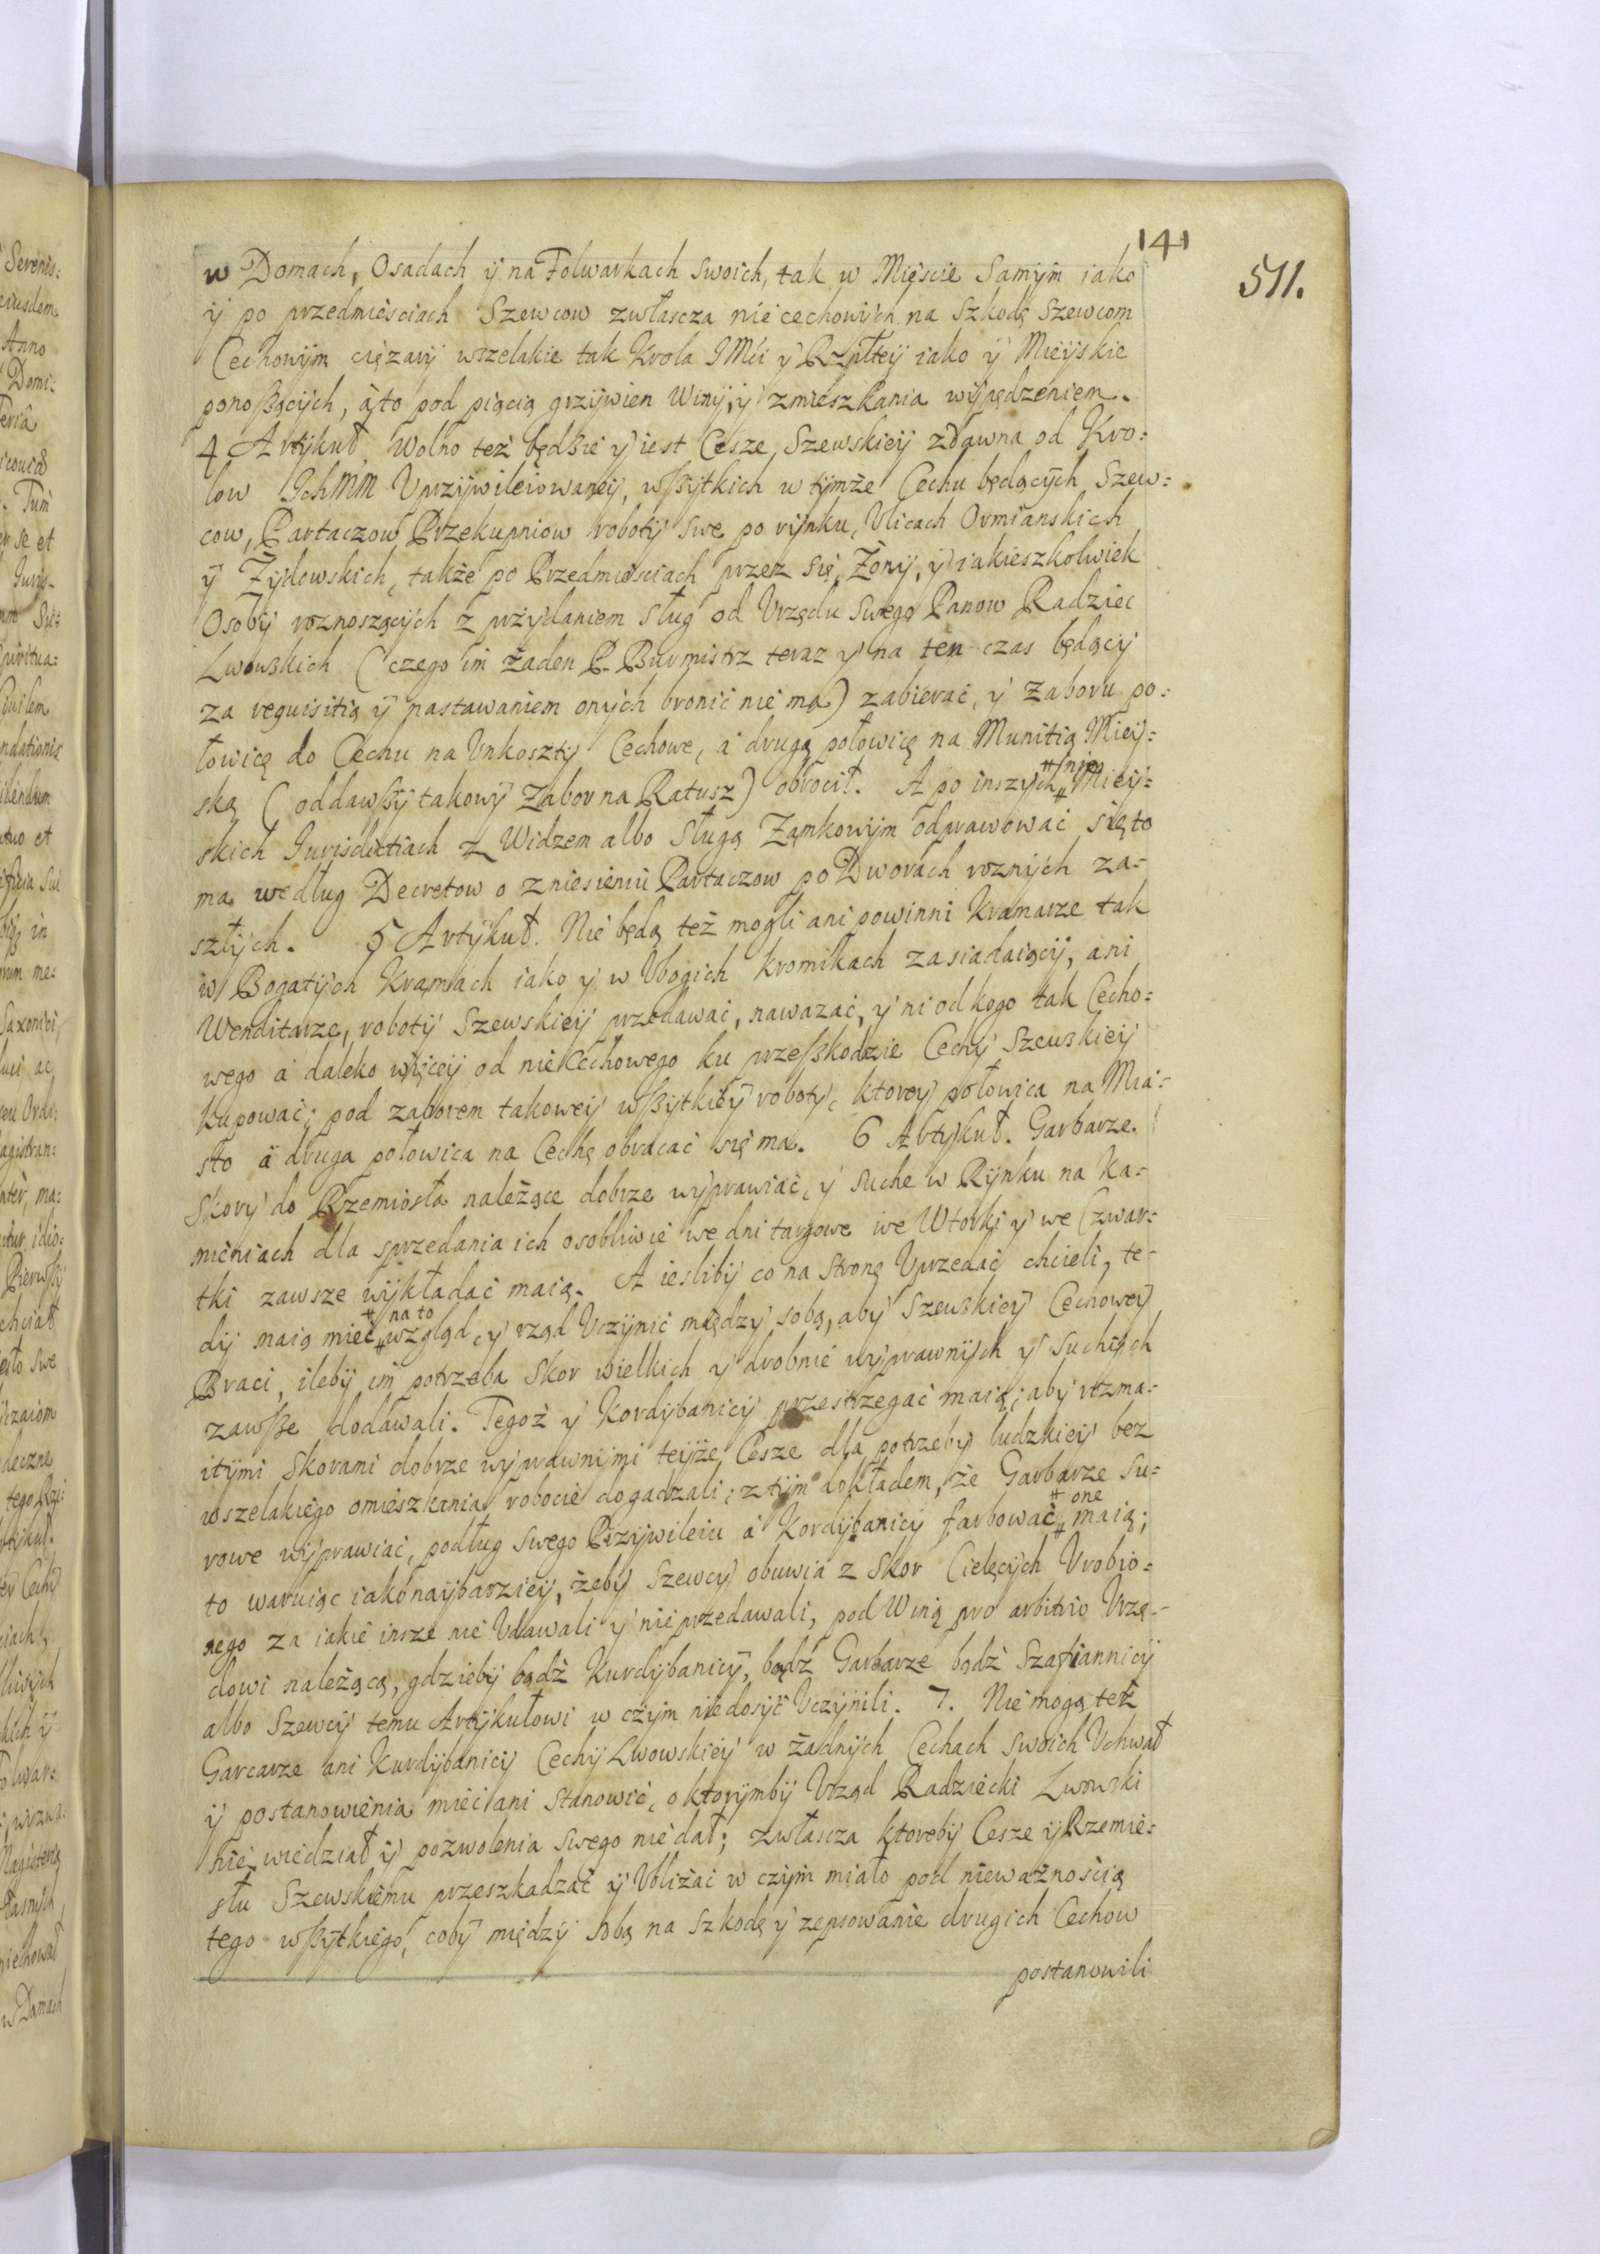 141
511.
w Domach, Osadach ÿ na Folwarkach swoich, tak w Mięście Samÿm iako
ÿ po przedmieściach Szewcow zwłascza nie cechowÿch na Szkodę Szewcom
Cechowÿm ciężarÿ wszelakie tak Krola JMći ÿ Rzplteÿ iako ÿ Mieÿskie
ponoßącÿch, áto pod piącią grzÿwien Winÿ, ÿ zmieszkania wÿpędzeniem.
4 Artÿkuł. Wolno też będzie ÿ iest Cesze Szewskieÿ zdawna od Kro:
low Ichmm Vprzÿwileiowaneÿ, wßÿtkich w tÿmże Cechu będącÿch Szew:
cow, Partaczow Przekupniow robotÿ swe po rÿnku, Vlicach Ormianskich
ÿ Żÿdowskich, także po Przedmieściach przez się, Żonÿ, ÿ iakieszkolwiek
Osobÿ roznoszącÿch z przÿdaniem sług od Vrzędu swego Panow Radziec
Lwowskich (czego im żaden P. Burmistrz teraz ÿ na ten czas będącÿ
za requisitią ÿ nastawaniem onÿch bronić nie ma) zabierać, ÿ zaboru po:
łowicę do Cechu na Vnkosztÿ Cechowe, á drugą połowicę na Munitią Mieÿ:
ską (oddawßÿ takowÿ Zabor na Ratusz) obrocił. A po inszÿch # Mieÿ:
# nie
skich Jurisdictiach z Widzem albo Sługą Zamkowÿm odprawować się to
ma według Decretow o zniesieniu Partaczow po Dworach roznÿch za-
szłÿch. 5 Artÿkuł. Nie będą też mogli ani powinni Kramarze tak
w Bogatÿch Kramach iako ÿ w Vbogich kromikach zasiadaiącÿ, ani
Wenditarze, robotÿ Szewskieÿ przedawać, nawazać, ÿ ni od kogo tak Cecho:
wego á daleko więceÿ od nie Cechowego ku przeßkodzie Cechÿ Szewskieÿ
kupować; pod zaborem takoweÿ wßÿtkieÿ robotÿ, ktoreÿ połowica na Mia:
sto á druga połowica na Cechę obracać się ma. 6 Artÿkuł. Garbarze.
Skorÿ do Rzemiosła należące dobrze wÿprawiać, ÿ suche w Rÿnku na Ka-
mieniach dla sprzedania ich osobliwie we dni targowe we Wtorki ÿ we Czwar:
tki zawsze wÿkładać maią. A iesliby co na stronę Vprzedać chcieli, te-
# na to
dÿ maią mieć # wzgląd, ÿ rząd Vczÿnić międzÿ sobą, abÿ Szewskieÿ Cechoweÿ
Braci, ilebÿ im potrzeba skor wielkich ÿ drobnie wÿprawnÿch ÿ suchÿch
zawße dodawali. Tegoż ÿ Kordÿbanicÿ przestrzegać maią; abÿ rozma-
itÿmi skorami dobrze wÿprawnÿmi teÿże Cesze dla potrzebÿ ludzkieÿ bez
wszelakiego omieszkania robocie dogadzali; z tÿm dokładem, że Garbarze su:
# one
rowe wÿprawiać, podług swego Przÿwileiu á Kordÿbanicÿ farbować # maią;
to waruiąc iako naÿbarzieÿ, żebÿ szewcÿ obuwia z skor Cielęcÿch Vrobio:
nego za iakie insze nie Vdawali ÿ nie przedawali, pod Winą pro arbitrio Vrzę-
dowi należącą, gdziebÿ bądź Kurdÿbanicÿ, bądź Garbarze bądź Szafiannicÿ
albo Szewcÿ temu Artÿkułowi w czÿm niedosÿć Vczÿnili. 7. Nie mogą też
Garcarze ani Kurdÿbanicÿ Cechÿ Lwowskieÿ w żadnÿch Cechach swoich Vchwał
ÿ postanowienia mieć ani stanowić, o ktorÿmbÿ Vrząd Radziecki Lwowski
nie wiedział ÿ pozwolenia swego nie dał; zwłascza ktorebÿ Cesze ÿ Rzemie:
słu Szewskiemu przeszkadzać ÿ Vbliżać w czÿm miało pod nieważnością
tego wßÿtkiego, cobÿ międzÿ sobą na szkodę ÿ zepsowanie drugich Cechow
postanowili